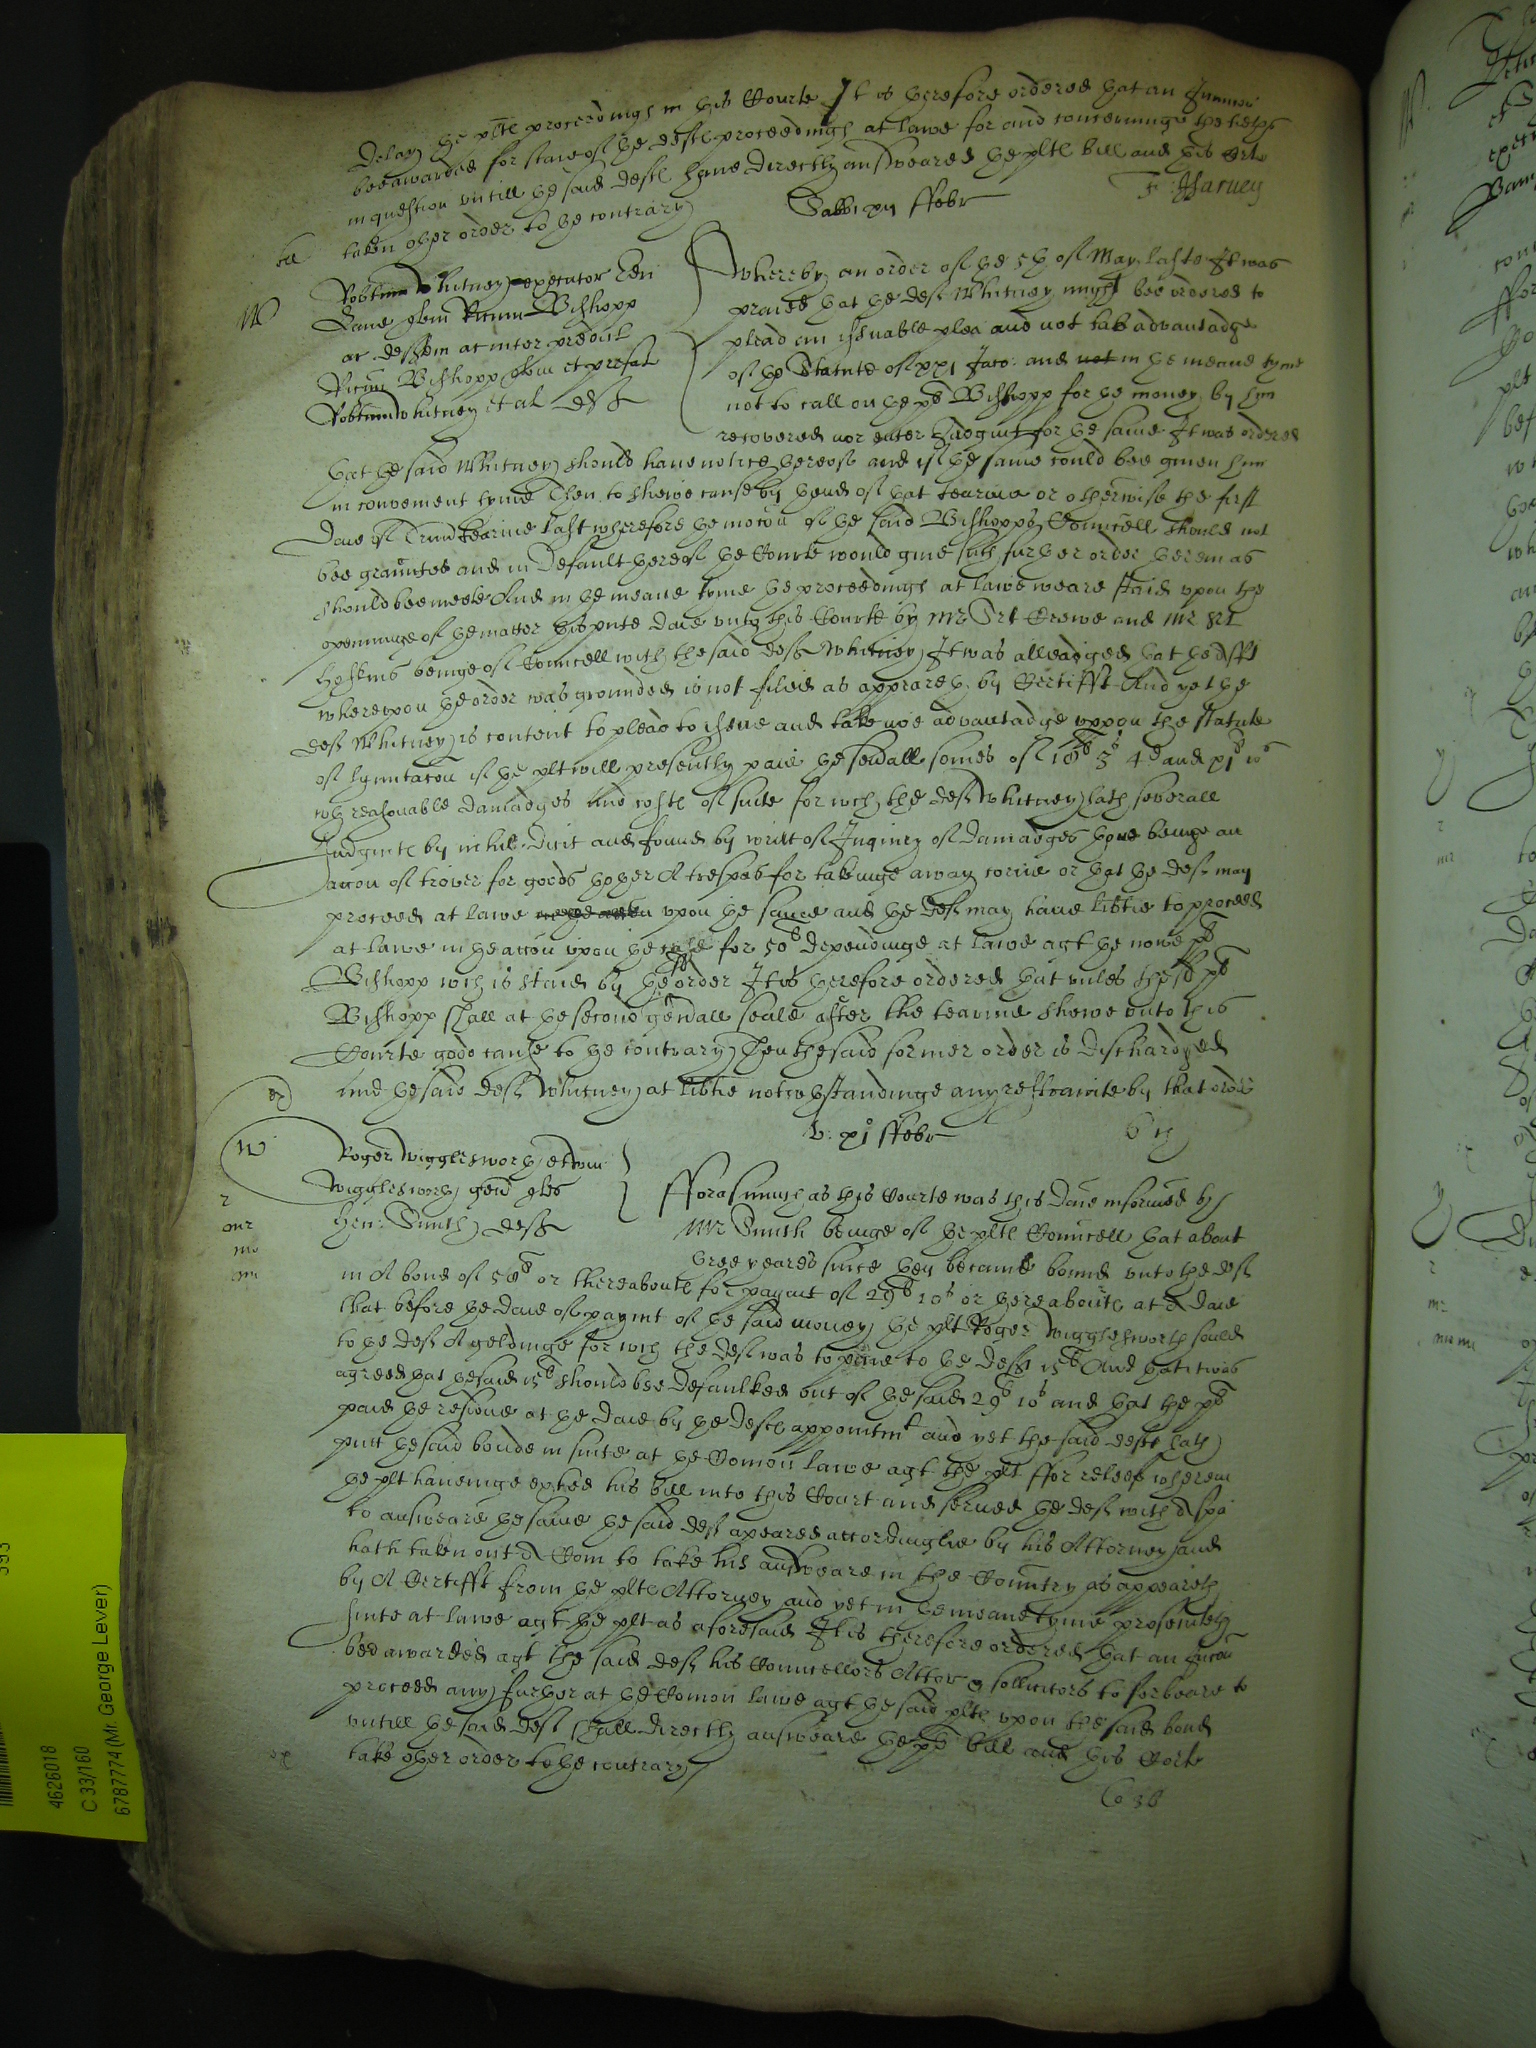 delay the pltes proceedings in this Courte It is therefore ordered that an Iniunccon
bee awarded for staie of the deftes proceedings at lawe for and concerninge the
in question vntill the said deftes haue directly answeared the pltes bill and this Courte
taken other order to the contrary
F: Haruey
Sabbi xij ffebr
W
Robtum Whitney
quer Ricum Bishopp
ac deftem ac inter predcum
Ricum Bishopp quer et prefat
Robtum Whitney et al defts
Whereby an order of the 5th of May laste It was
praied that the deft Whitney might bee ordered to
plead an issuable plea and not take advantadge
of the Statute of xxj Jaco: and not in the meane tyme
not to call on the plt Bishopp for the money by him
recovered nor enter Iudgmt for the same It was ordered
that the said Whitney should haue notice thereof and if the same could bee giuen him
in convenient tyme Then to shewe cause by thend of that tearme or otherwise the first
daie of Trin tearme last wherefore the mocon of the said Bishopps Councell should not
bee graunted and in default thereof the Courte would giue such further order therein as
should bee meete And in the meane tyme the proceedings at lawe weare staid vpon the
openinge of the matter this pnte daie vnto this Courte by Mr Srt Crewe and Mr
Hoskins beinge of Councell with the said deft Whitney It was alleadged that the afft
wherevpon the order was grounded is not filed as appeareth by Certifft And yet the
deft Whitney is content to plead to issue and take noe advantadge vppon the statute
of lymitacon if the plt will presently paie the seuall somes of 10li 3s 4d and xjli 10s
wth reasonable damadges and costes of suite for wch the deft Whitney hath severall
Iudgmtes by nihil dicit and found by writt of Inquiry of damadges thone beinge an
accon of trover for goods thother A trespas for takinge away corne or that the deft may
proceed at lawe vpon the same and the deft may haue libtie to proceed
at lawe in the accon vpon the case for 50li dependinge at lawe agt the nowe plt
Bishopp wch is staid by the sd order It is therefore ordered that vnles the sd plt
Bishopp shall at the second genall seale after the tearme shewe vnto this
Courte good cause to the contrary Then the said former order is dischardged
And the said deft Whitney at libtie notwthstandinge any restrainte by that order
V: xjo ffebr
W
Roger Wigglesworth et
Wigglesworth quer
Hen: Smith deft
fforasmuch as this Courte was this daie informed by
Mr Smith beinge of the pltes Councell that about
three yeares since they became bound vnto the deft
in A bond of 58li or thereaboutes for paymt of 29li 10s or thereaboutes at A daie
that before the daie of paymt of the said money the plt Roger Wigglesworth sould
to the deft A geldinge for wch the deft was to paie to the deft 15li And that it was
agreed that the said 15li should bee defaulked out of the said 29li 10s and that the plt
paid the residue at the daie by the deftes appointmt and yet the said deft hath
putt the said bonde in suite at the Comon lawe agt the plt ffor releef wherein
the plt haueinge exhibted his bill into this Court and serued the deft with A spa
to answeare the same the said deft apeared accordinglie by his Attorney and
hath taken out A Com to take his answeare in the Country as appeareth
by A Certifft from the pltes Attorney and yet in the meane tyme prosecuteth
suite at lawe agt the plt as aforesaid It is therefore ordered that an Iniuncon
bee awarded agt the said deft his Councellors Attor &amp; sollicitors to forbeare to
proceed any further at the Comon lawe agt the said pltes vpon the said bond
vntill the said deft shall directly answeare the pltes bill and this Corte
take other order to the contrary
4626018
C 33/160
6787774 (Mr. George Lever)